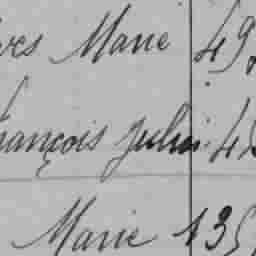 Marie 49
François Julien 4
Marie 135